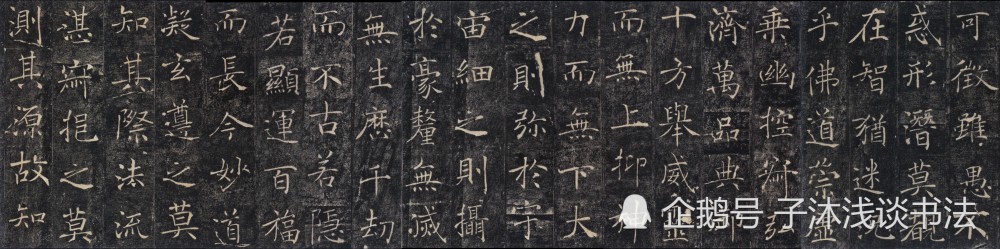 可徵雖愚不
惑形潛莫覩
在智猶迷況
乎佛道崇虛
乘幽控寂弘
濟萬品典御
十方舉威靈
而無上抑神
力而無下大
之則弥於宇
宙細之則攝
於豪釐無滅
無生歷千劫
而不古若隱
若顯運百福
而長今妙道
凝玄遵之莫
知其際法流
湛寂挹之莫
測其源故知
企鹅号 子沐浅谈书法